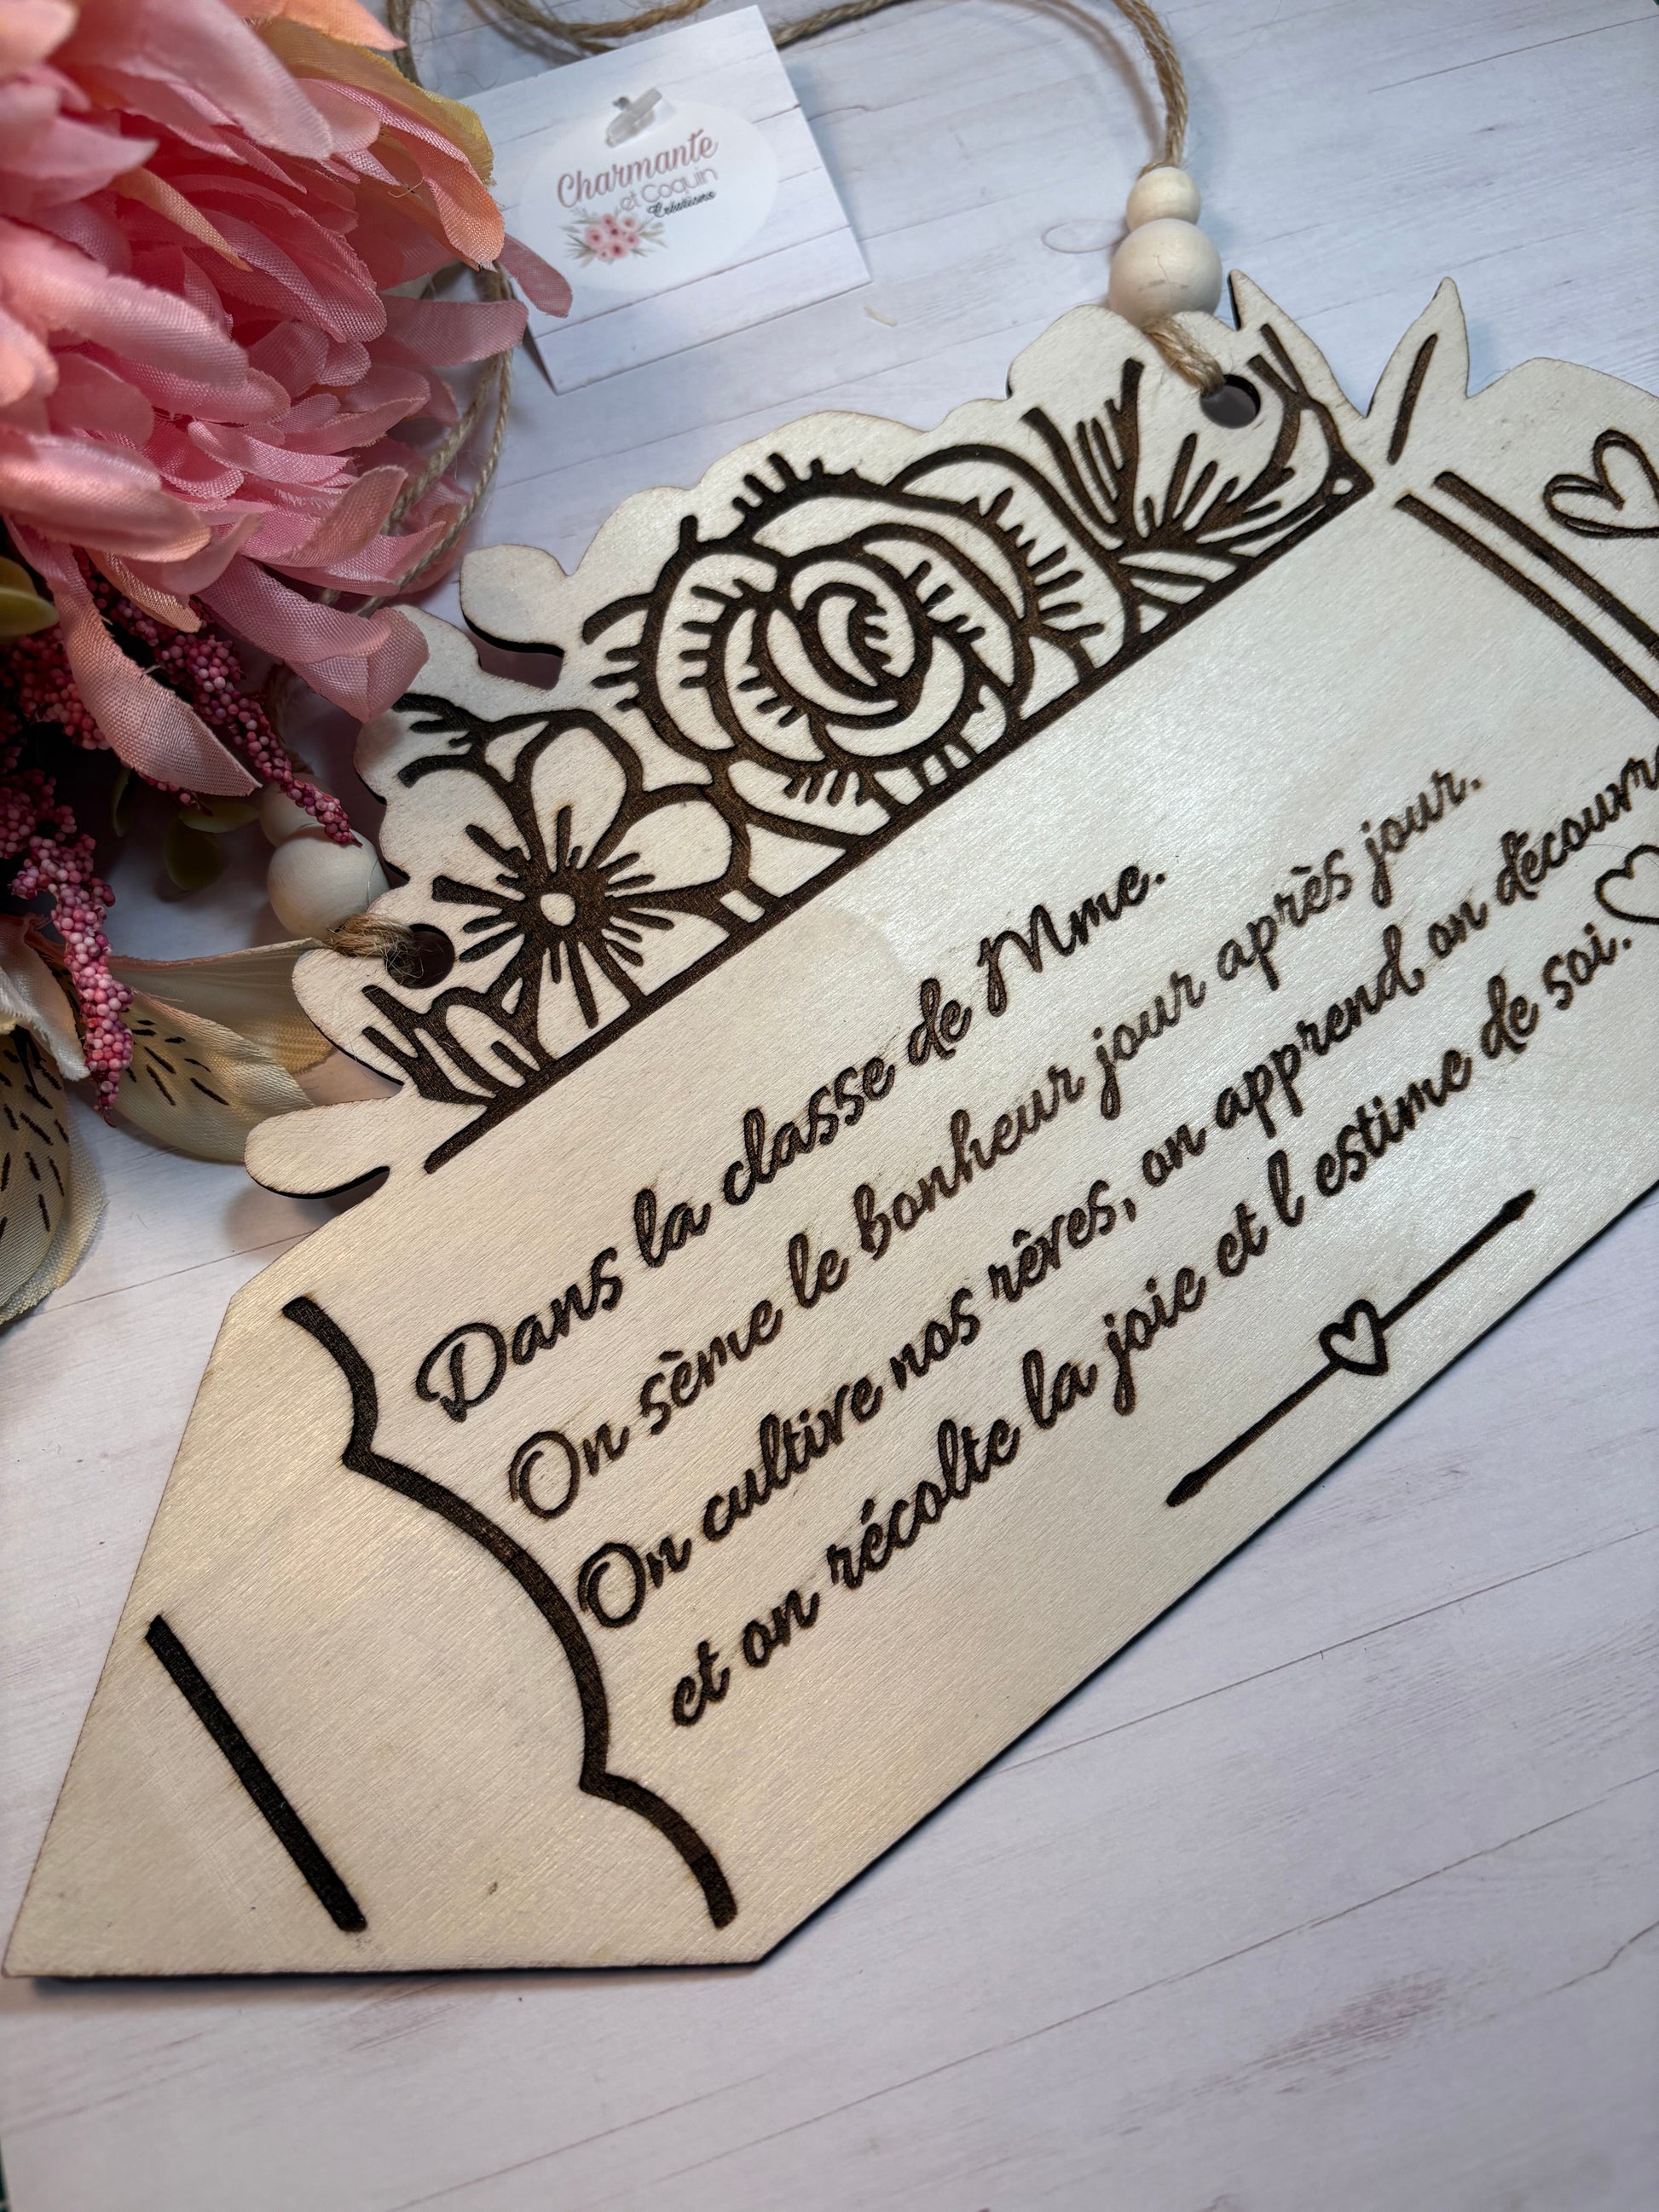 Charmante
et Coquin
Créations
Dans la classe de Mme.
On sème le bonheur jour après jour.
On cultive nos rêves, on apprend, on découvr
et on récolte la joie et l estime de soi.